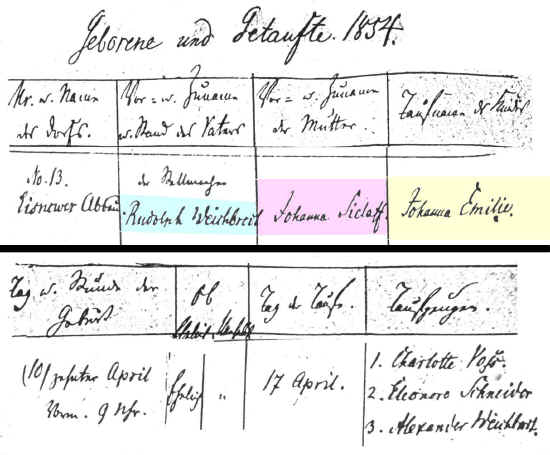 Geborene und Getaufte. 1854.
Nr. u. Name
des Dorfs.
Vor= u. Zuname
u. Stand des Vaters
Vor= u. Zuname
der Mutter.
Taufname des Kindes
No. 13.
Eisnewer Abbau
der Stellmacher
Rudolph Weichbrodt
Johanna Sielaff.
Johanna Emilie.
Tag u. Stunde der
Geburt
Ob
Tag der Taufe.
Taufzeugen.
(10) zehnter April
Vorm. 9 Uhr.
Ehelig
"
17 April.
1. Charlotte Voß.
2. Eleonore Schneider
3. Alexander Weichbrot.